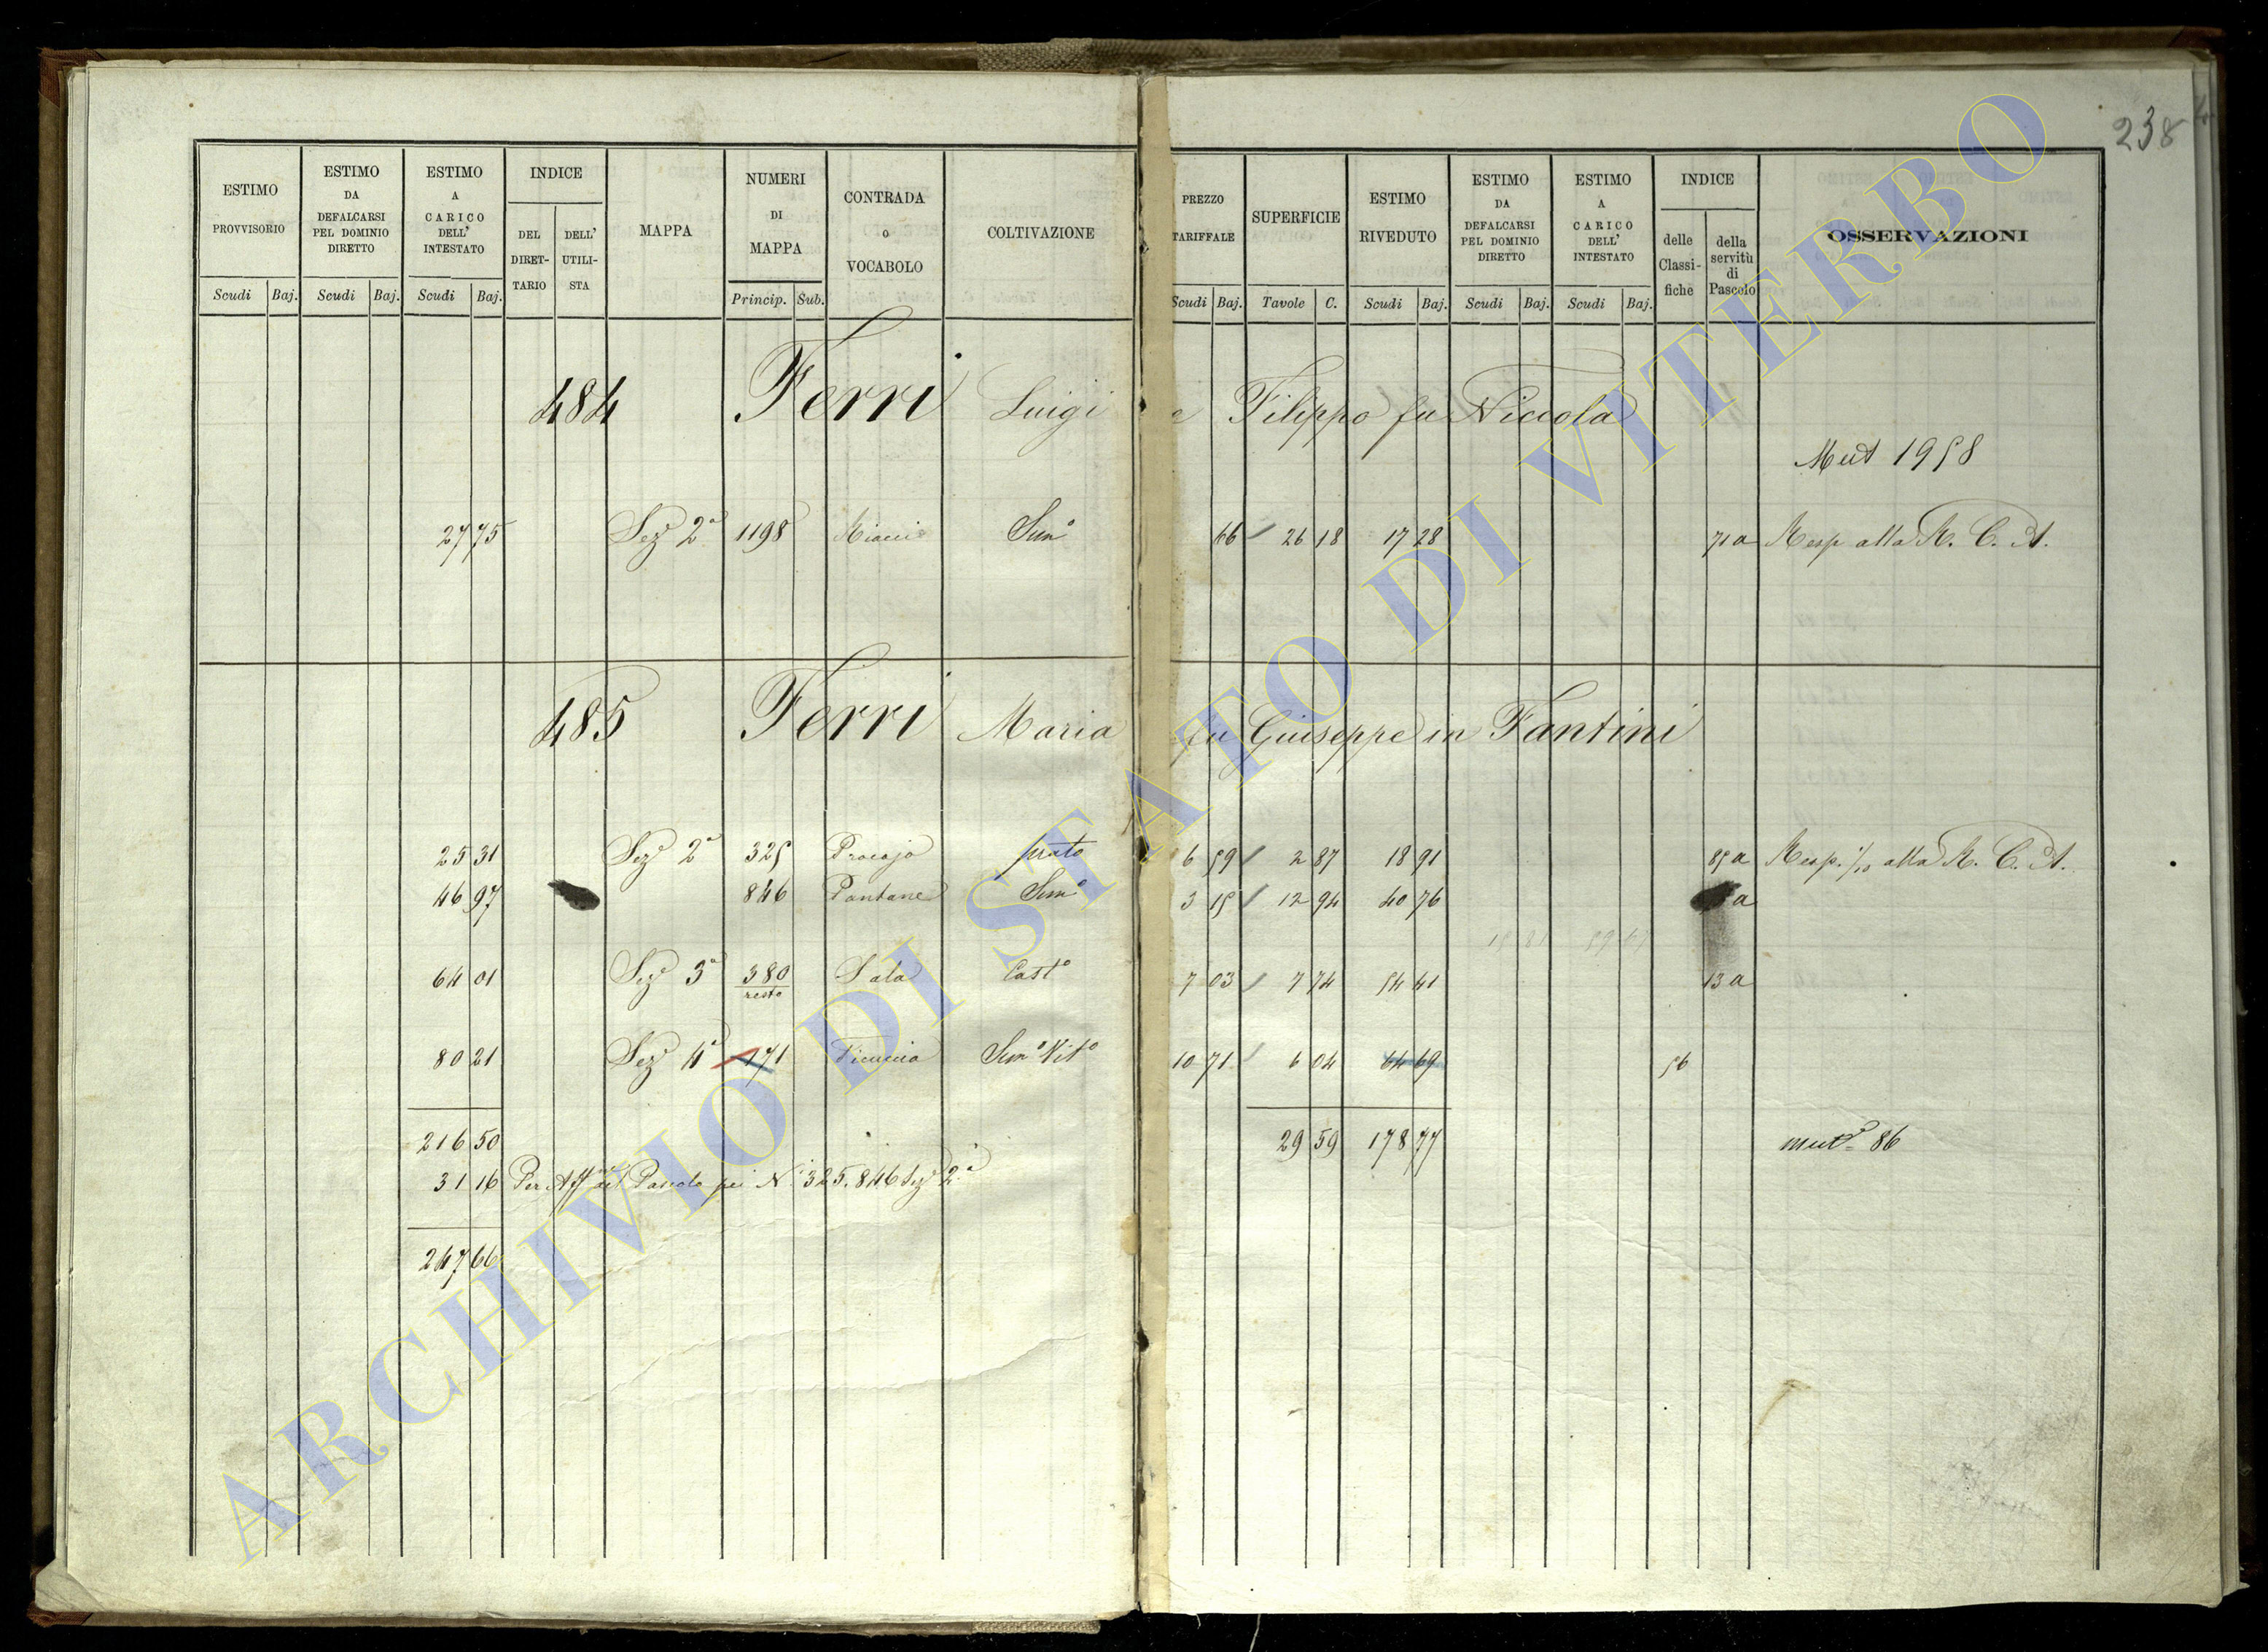 238
ESTIMO PROVVISORIO
ESTIMO DA DEFALCARSI PEL DOMINIO DIRETTO
ESTIMO A CARICO DELL' INTESTATO
INDICE
DEL DIRET-TARIO
DELL' UTILI-STA
MAPPA
NUMERI DI MAPPA
CONTRADA o VOCABOLO
COLTIVAZIONE
PREZZO TARIFFALE
SUPERFICIE
ESTIMO RIVEDUTO
ESTIMO DA DEFALCARSI PEL DOMINIO DIRETTO
ESTIMO A CARICO DELL' INTESTATO
INDICE
delle Classi-fiche
della servitù di Pascolo
OSSERVAZIONI
Scudi Baj. Scudi Baj. Scudi Baj. Princip. Sub. Scudi Baj. Tavole C. Scudi Baj. Scudi Baj. Scudi Baj.
484 Ferri Luigi e Filippo fu Niccola
Mut 1958
27 75 Sez 2a 1198 Sem° 66 26 18 17 28 71a Resp alla R. C. A.
485 Ferri Maria fu Giuseppe in Fantini
25 31 Sez 2a 325 Procojo prato 6 59 2 87 18 91 85a Resp. 1/10 alla R. C. A.
46 97 846 Pantane Sem° 3 15 12 94 40 76 a
18 81 59 67
64 01 Sez 3a 380 resto Sala Cast° 7 03 7 74 54 41 13a
80 21 Sez 4a 171 Ficuccia Sem° Vit° 10 71 6 04 64 69 56
216 50 29 59 178 77 mut.e 86
31 16 Per Aff.ne del Pascolo pei N.i 325. 846 Sez 2.a
247 66
ARCHIVIO DI STATO DI VITERBO